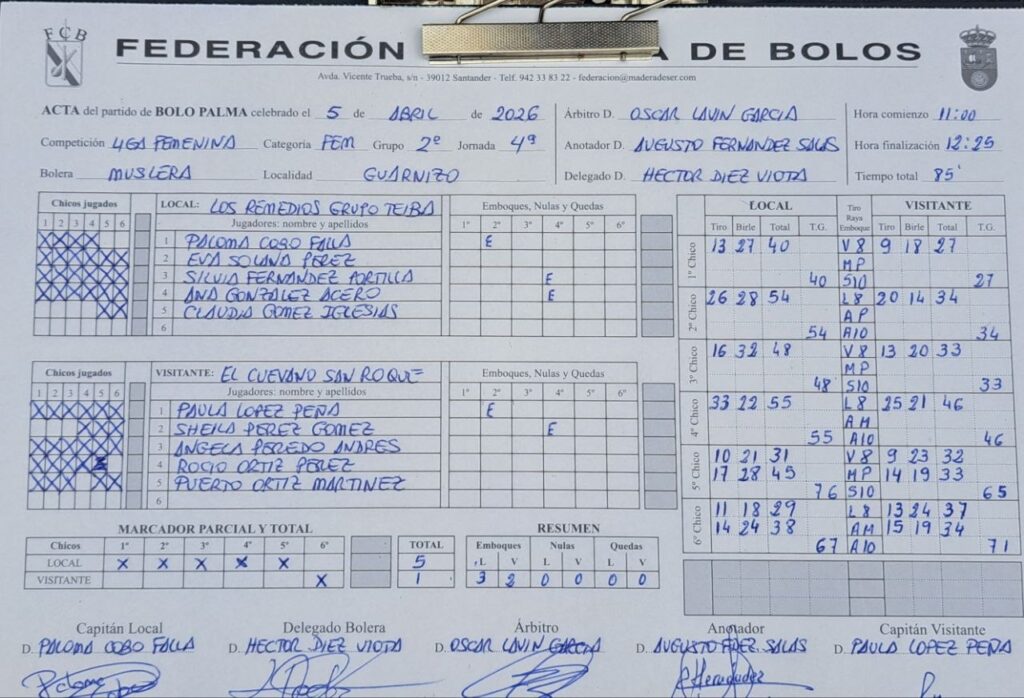 FCB
FEDERACIÓN A DE BOLOS
Avda. Vicente Trueba, s/n - 39012 Santander - Telf. 942 33 83 22 - federacion@maderadeser.com
ACTA del partido de BOLO PALMA celebrado el 5 de ABRIL de 2026
Competición LIGA FEMENINA Categoria FEM Grupo 2º Jornada 4ª
Bolera MUSLERA Localidad GUARNIZO
Árbitro D. OSCAR LAVIN GARCIA
Anotador D. AUGUSTO FERNANDEZ SALAS
Delegado D. HECTOR DIEZ VIOTA
Hora comienzo 11:00
Hora finalización 12:25
Tiempo total 85'
Chicos jugados
1 2 3 4 5 6
LOCAL: LOS REMEDIOS GRUPO TEIBA
Jugadores: nombre y apellidos
Emboques, Nulas y Quedas
1º 2º 3º 4º 5º 6º
1 PALOMA COBO FALLA E
2 EVA SOLANA PEREZ
3 SILVIA FERNANDEZ PORTILLA E
4 ANA GONZALEZ ACERO E
5 CLAUDIA GOMEZ IGLESIAS
6
Chicos jugados
1 2 3 4 5 6
VISITANTE: EL CUEVANO SAN ROQUE
Jugadores: nombre y apellidos
Emboques, Nulas y Quedas
1º 2º 3º 4º 5º 6º
1 PAULA LOPEZ PEÑA E
2 SHEILA PEREZ GOMEZ E
3 ANGELA PEREDO ANDRES
4 ROCIO ORTIZ PEREZ
5 PUERTO ORTIZ MARTINEZ
6
MARCADOR PARCIAL Y TOTAL
Chicos 1º 2º 3º 4º 5º 6º TOTAL
LOCAL X X X X X 5
VISITANTE X 1
RESUMEN
Emboques Nulas Quedas
L V L V L V
3 2 0 0 0 0
LOCAL Tiro Raya Emboque VISITANTE
Tiro Birle Total T.G. Tiro Birle Total T.G.
1º Chico
13 27 40 V8 9 18 27
MP
40 S10 27
2º Chico
26 28 54 L8 20 14 34
AP
54 A10 34
3º Chico
16 32 48 V8 13 20 33
MP
48 S10 33
4º Chico
33 22 55 L8 25 21 46
AM
55 A10 46
5º Chico
10 21 31 V8 9 23 32
17 28 45 MP 14 19 33
76 S10 65
6º Chico
11 18 29 L8 13 24 37
14 24 38 AM 15 19 34
67 A10 71
Capitán Local
D. PALOMA COBO FALLA
Delegado Bolera
D. HECTOR DIEZ VIOTA
Árbitro
D. OSCAR LAVIN GARCIA
Anotador
D. AUGUSTO FDEZ SALAS
Capitán Visitante
D. PAULA LOPEZ PEÑA